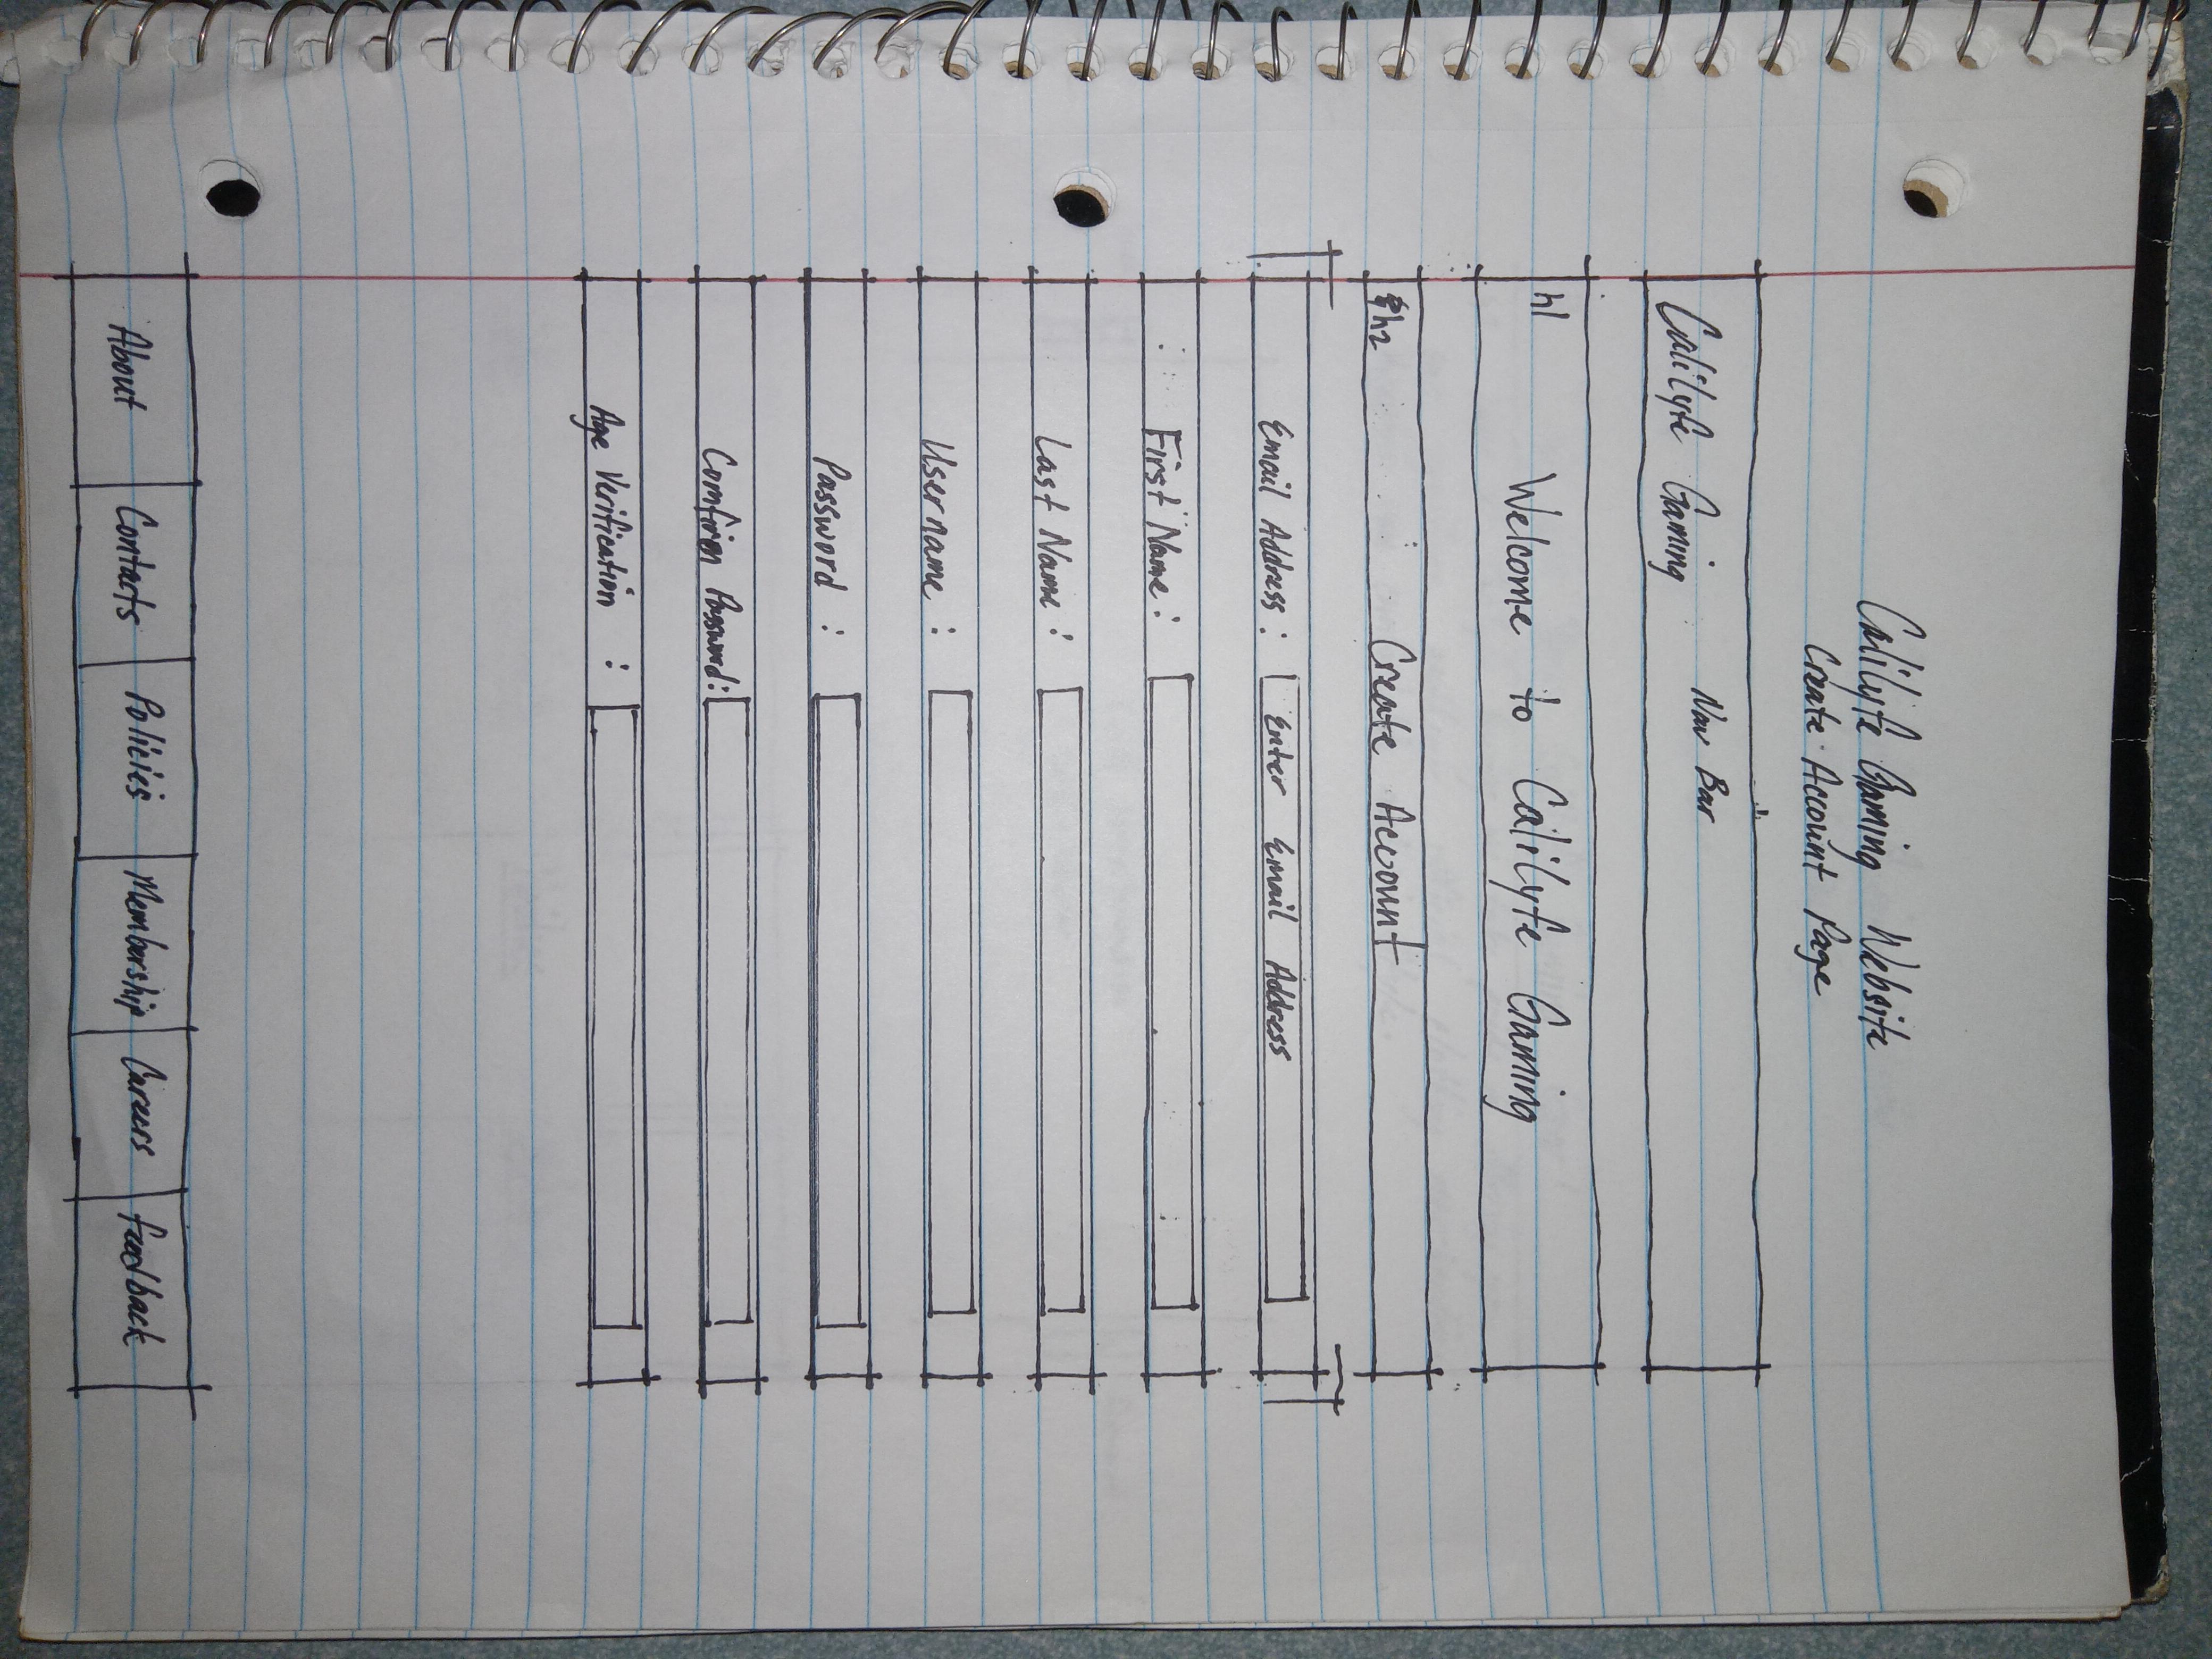 Calilyfe Gaming Website
Create Account Page
Calilyfe Gaming Nav Bar
h1 Welcome to Calilyfe Gaming
h2 Create Account
Email Address: Enter Email Address
First Name:
Last Name:
Username:
Password:
Comfirm Password:
Age Verification:
About Contacts Policies Membership Careers Feedback